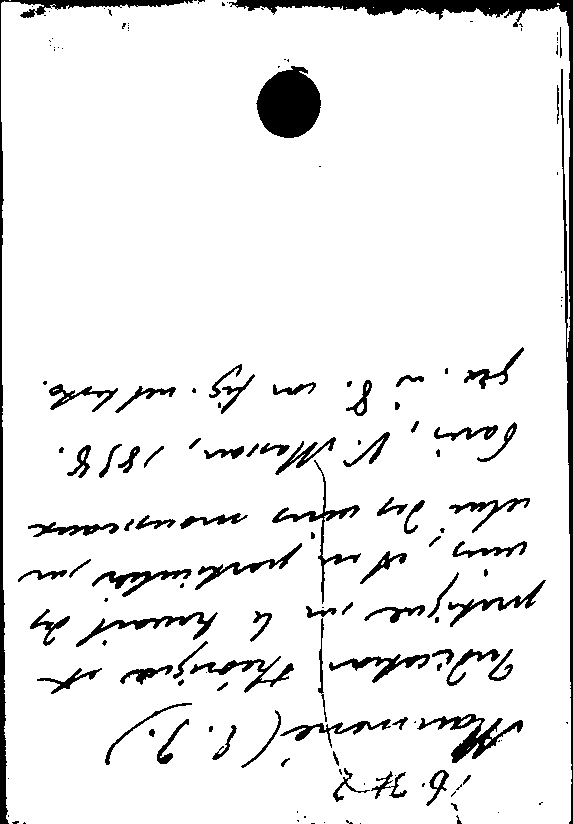 Maumené (E. J.)
Indication théorique et
pratique sur le travail des
vins, et en particulier sur
celui des vins mousseaux
Paris, V. Masson, 1858.
gr. in 8. con fig. nel testo.